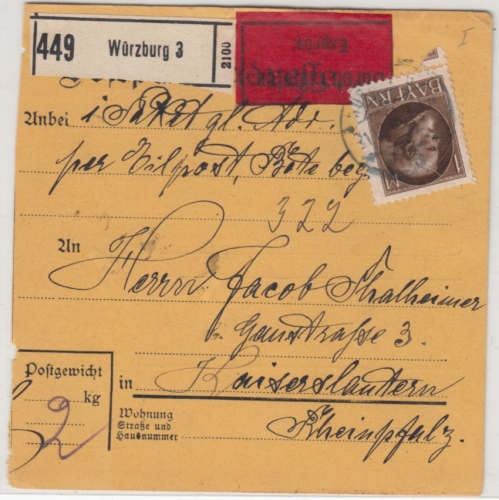 449 Würzburg 3 2100
durch Eilboten
Exprès.
BAYERN
1 M
I
Anbei 1 Paket gl. Adr.
per Eilpost, Bote bez.
322
An
Herrn Jacob Thalheimer
Gaustraße 3.
Postgewicht
2 kg
in Kaiserslautern
Wohnung
Straße und
Hausnummer
Rheinpfalz.